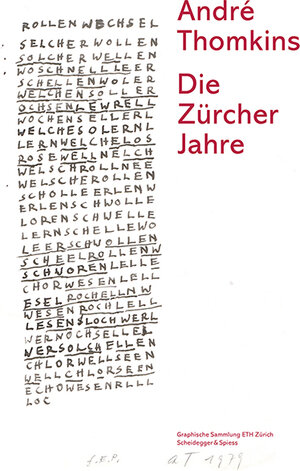 André
Thomkins
Die
Zürcher
Jahre
ROLLENWECHSEL
SELCHERWOLLEN
SOLCHERWELLEN
WOSCHNELLLEER
SCHELLENWOLER
WELCHENSOLLER
OCHSENLEWRELL
WOCHENSELLERL
WELCHESOLERNL
LERNWELCHELOS
ROSEWELLNELCH
WELSCHROLLNEE
WELSCHEROLLEN
SCHOLLEERLENW
ERLENSCHWOLLE
LORENSCHWELLE
LERNSCHELLEWO
LEERSCHWOLLEN
SCHEELROLLENW
SCHWORENLELLE
CHORWESENLELL
ESELROCHELLNW
WESENROCHLELL
LESENSLOCHWERL
WERNOCHSELLEL
VERSOLCHELLEN
CHLORWELLSEEN
WELLCHLORSEEN
ECHOWESENRLLL
LOC
Graphische Sammlung ETH Zürich
Scheidegger & Spiess
f.E.P. aT 1979